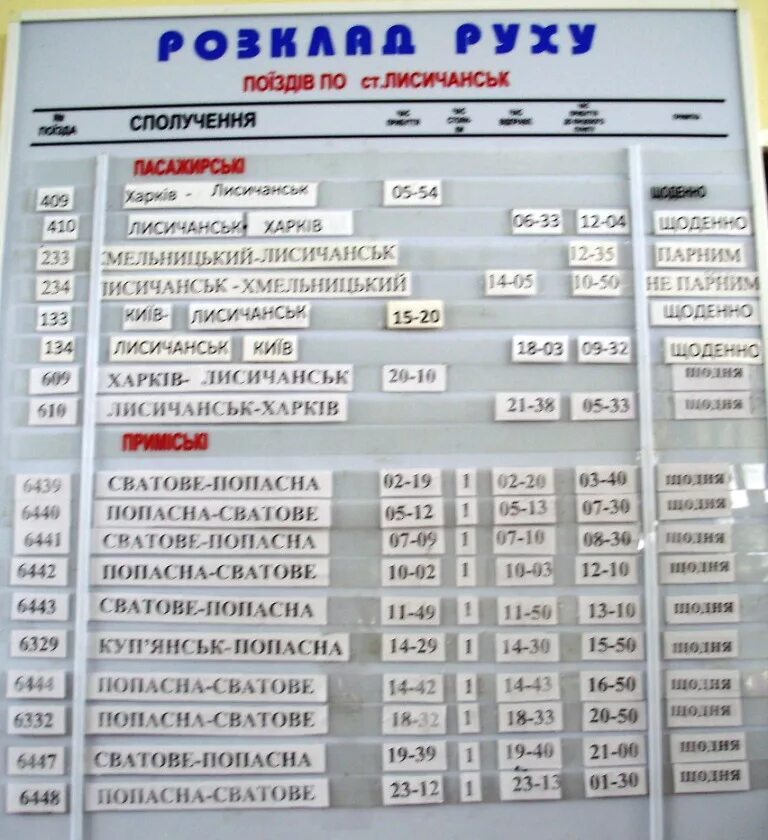 РОЗКЛАД РУХУ
ПОЇЗДІВ ПО ст.ЛИСИЧАНСЬК
№ ПОЇЗДА СПОЛУЧЕННЯ ЧАС ПРИБУТТЯ ЧАС ЧАС ЧАС ПРИБУТТЯ
ПАСАЖИРСЬКІ
409 Харків - Лисичанськ 05-54 ЩОДЕННО
410 ЛИСИЧАНСЬК ХАРКІВ 06-33 12-04 ЩОДЕННО
233 ХМЕЛЬНИЦЬКИЙ-ЛИСИЧАНСЬК 12-35 ПАРНИМ
234 ЛИСИЧАНСЬК-ХМЕЛЬНИЦЬКИЙ 14-05 10-50 НЕ ПАРНИМ
133 КИЇВ- ЛИСИЧАНСЬК 15-20 ЩОДЕННО
134 ЛИСИЧАНСЬК КИЇВ 18-03 09-32 ЩОДЕННО
609 ХАРКІВ- ЛИСИЧАНСЬК 20-10 щодня
610 ЛИСИЧАНСЬК-ХАРКІВ 21-38 05-33 щодня
ПРИМІСЬКІ
6439 СВАТОВЕ-ПОПАСНА 02-19 1 02-20 03-40 щодня
6440 ПОПАСНА-СВАТОВЕ 05-12 1 05-13 07-30 щодня
6441 СВАТОВЕ-ПОПАСНА 07-09 1 07-10 08-30 щодня
6442 ПОПАСНА-СВАТОВЕ 10-02 1 10-03 12-10 щодня
6443 СВАТОВЕ-ПОПАСНА 11-49 1 11-50 13-10 щодня
6329 КУП'ЯНСЬК-ПОПАСНА 14-29 1 14-30 15-50 щодня
6444 ПОПАСНА-СВАТОВЕ 14-42 1 14-43 16-50 щодня
6332 ПОПАСНА-СВАТОВЕ 18-32 1 18-33 20-50 щодня
6447 СВАТОВЕ-ПОПАСНА 19-39 1 19-40 21-00 щодня
6448 ПОПАСНА-СВАТОВЕ 23-12 1 23-13 01-30 щодня